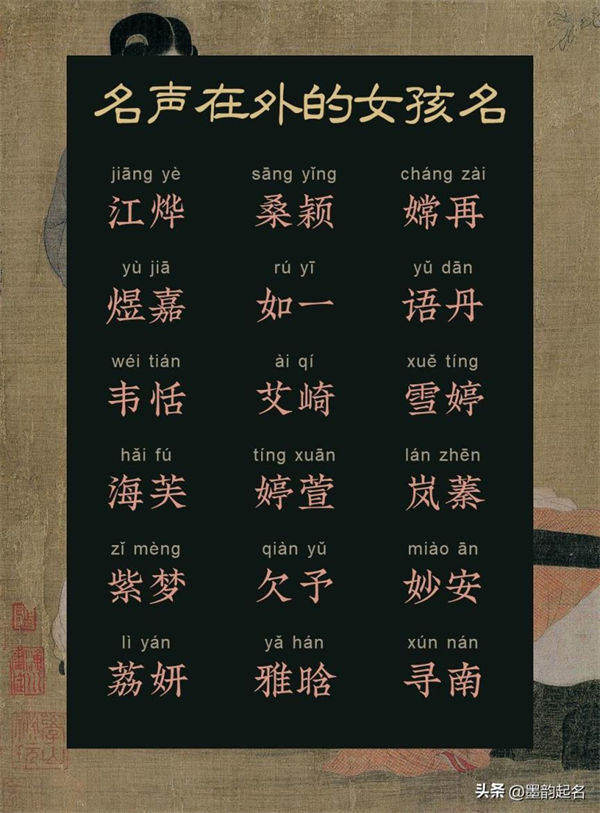 名声在外的女孩名
jiāng yè sāng yǐng cháng zài
江烨 桑颖 嫦再
yù jiā rú yī yǔ dān
煜嘉 如一 语丹
wéi tián ài qí xuě tíng
韦恬 艾崎 雪婷
hǎi fú tíng xuān lán zhēn
海芙 婷萱 岚蓁
zǐ mèng qiàn yǔ miào ān
紫梦 欠予 妙安
lì yán yǎ hán xún nán
荔妍 雅晗 寻南
头条 @墨韵起名